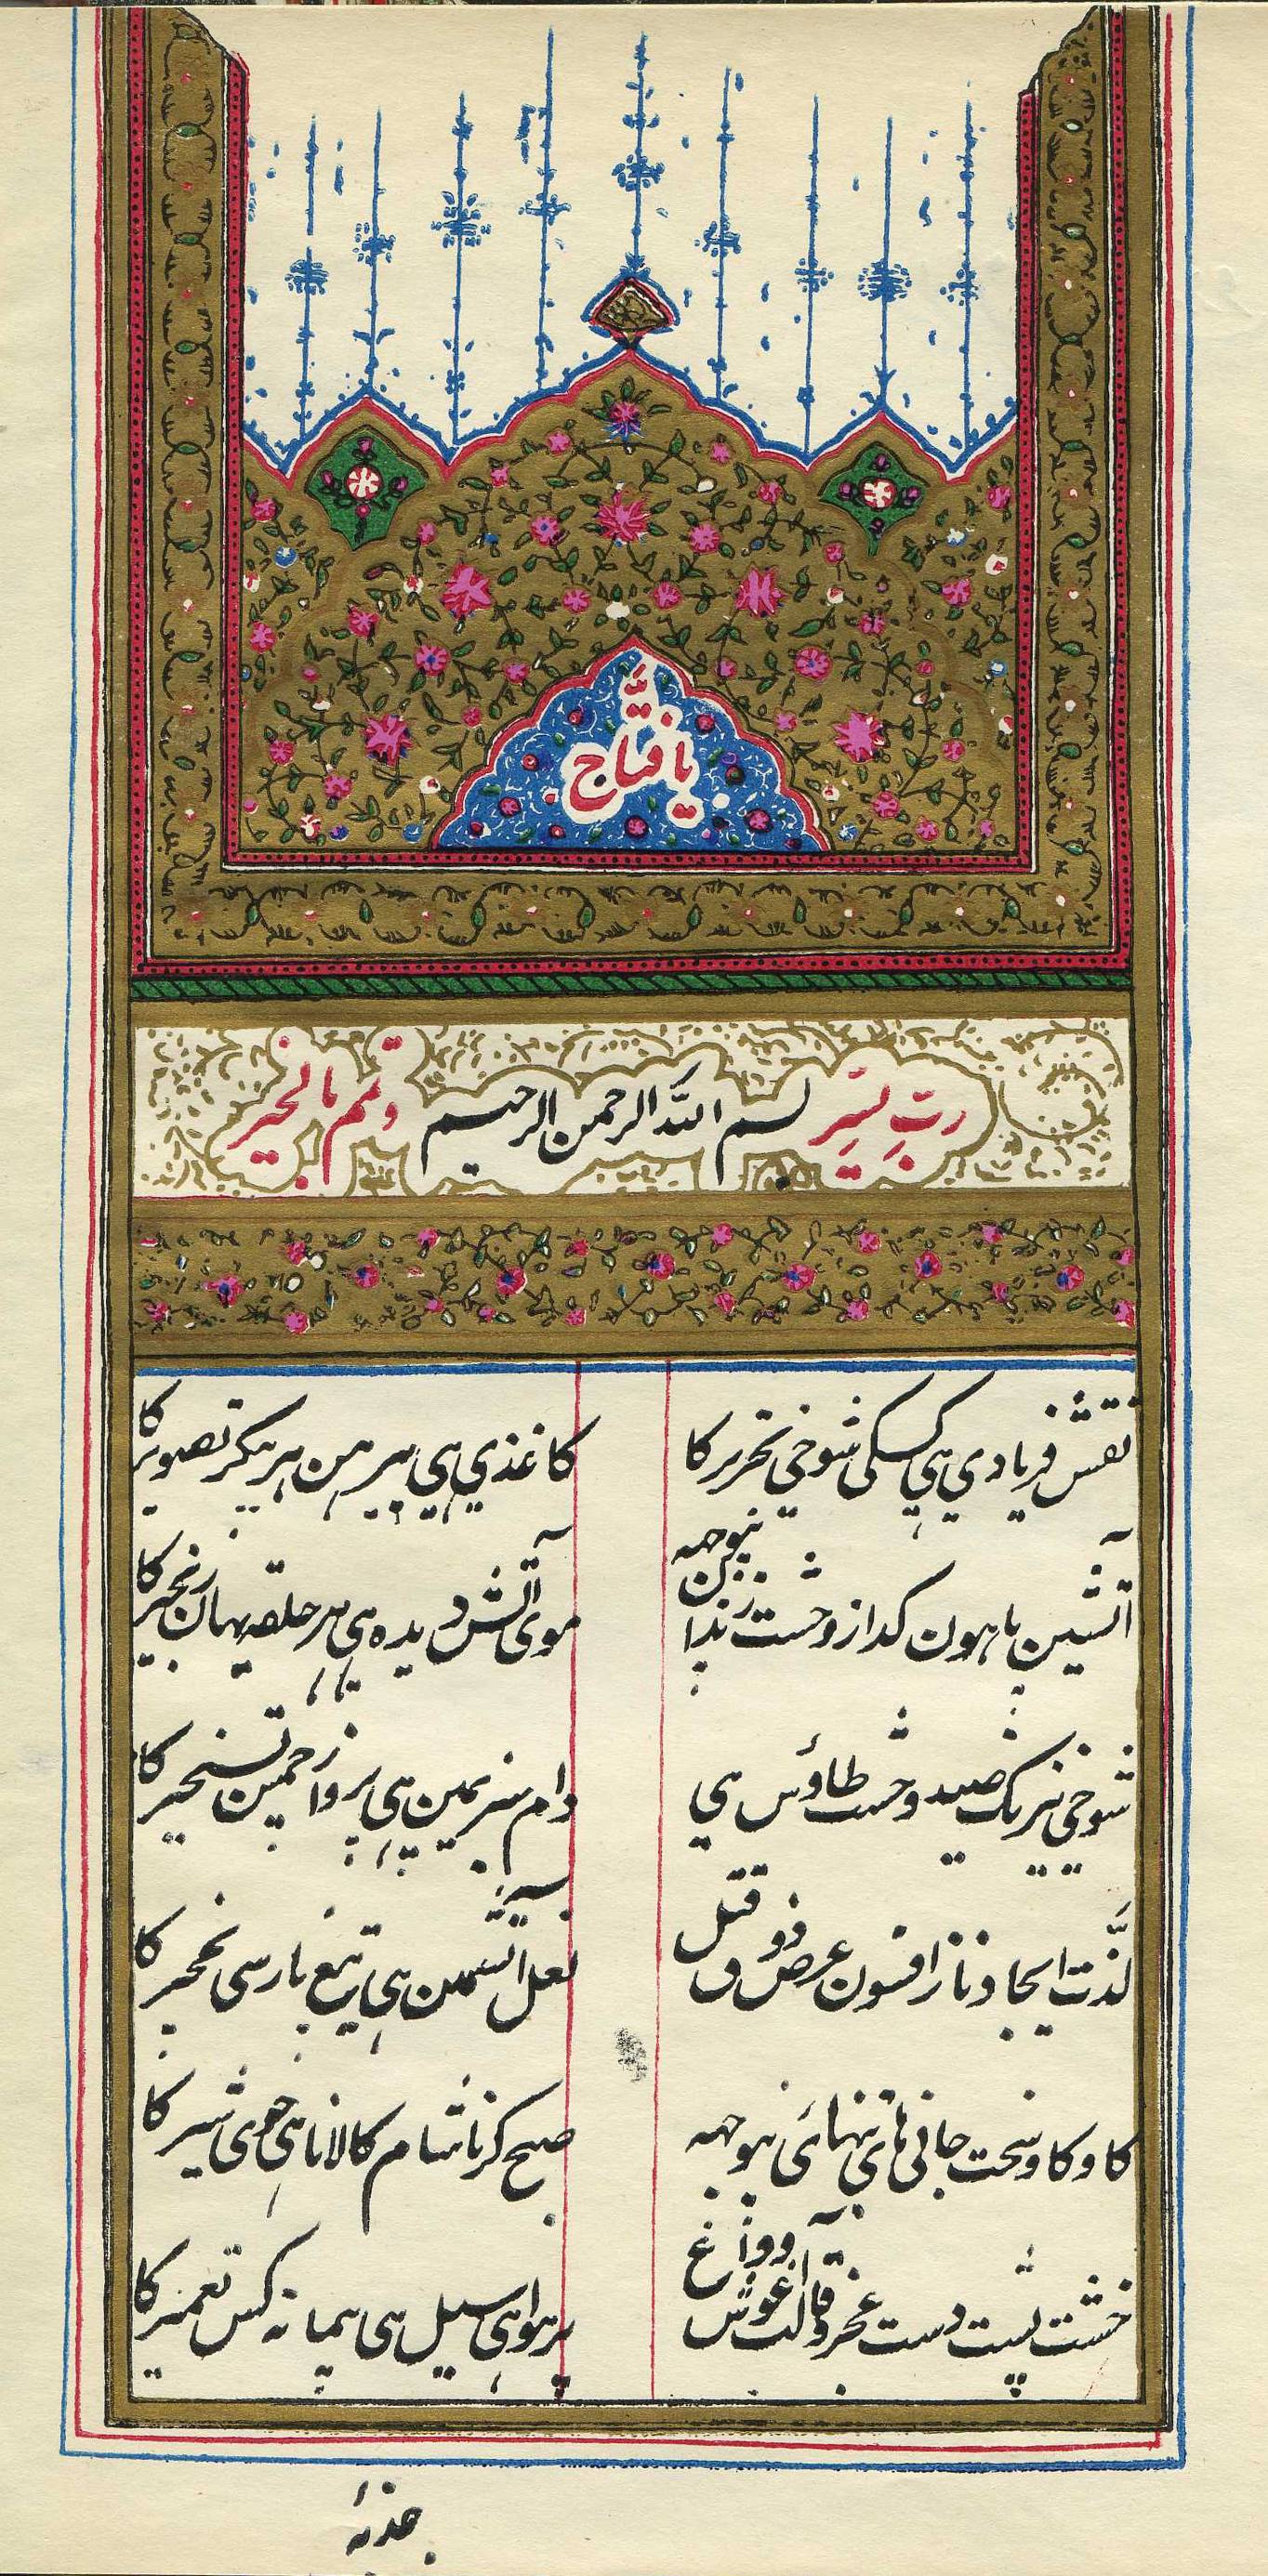 یا فتاح
رب یسر بسم الله الرحمن الرحیم وتمم بالخیر
نقش فریادی ہی کسکی شوخی تحریر کا
کاغذی ہی پیرہن ہر پیکر تصویر کا
آتشین پا ہون گداز وحشت زندان نپوچھہ
موی آتش دیدہ ہی ہر حلقہ یہان زنجیر کا
شوخی نیرنگ صید وحشت طاؤس ہی
دام سبزہ مین ہی پرواز چمن تسخیر کا
لذّت ایجاد ناز افسون عرض ذوق قتل
نعل آتش مین ہی تیغ یار سی نخچیر کا
کاوکاو سخت جانی ہای تنہائی نپوچھہ
صبح کرنا شام کا لانا ہی جوی شیر کا
خشت پشت دست عجز و قالب آغوش وداع
پر ہوا ہی سیل سی پیمانہ کس تعمیر کا
جذبہٴ